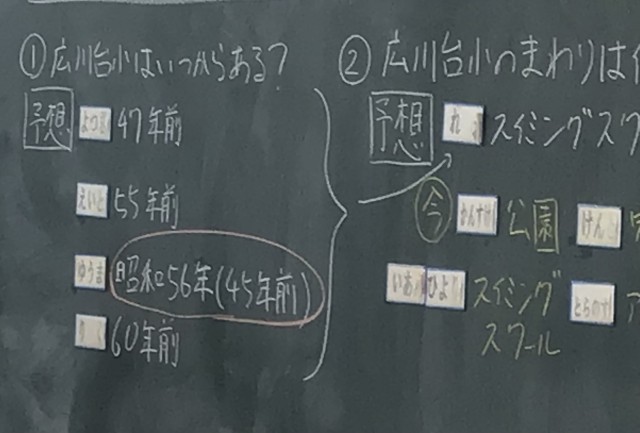 ①広川台小はいつからある?
予想
47年前
えいと 55年前
ゆうま 昭和56年(45年前)
60年前
②広川台小のまわりは
予想 スイミングスク
今 かんすけ 公園 けんと
いお ひより スイミング
スクール
とらのすけ